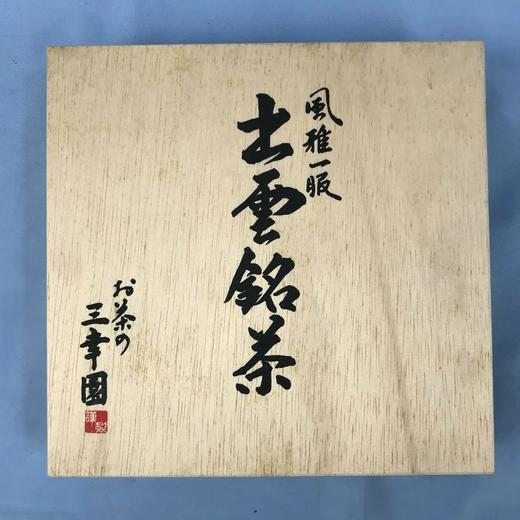 風雅一服
出雲銘茶
お茶の
三幸園
謹製